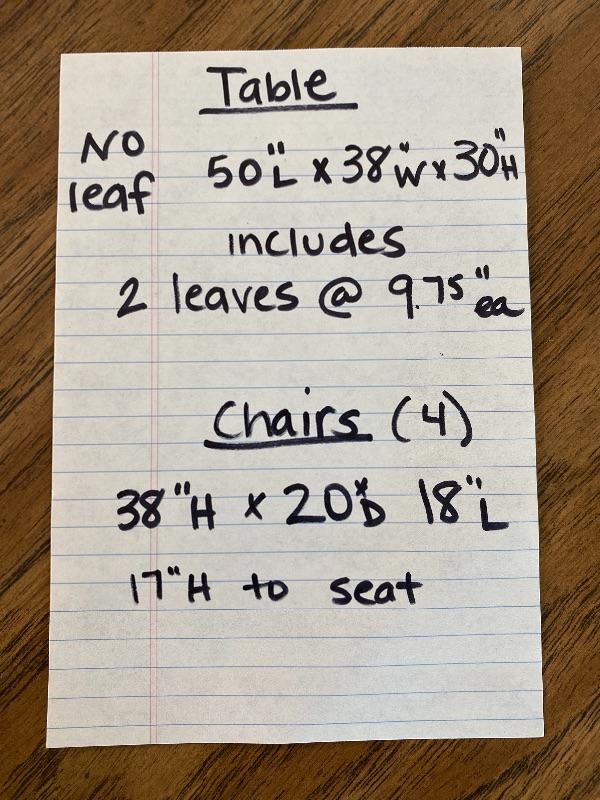 Table
No leaf 50"L x 38"W x 30"H
includes
2 leaves @ 9.75" ea
Chairs (4)
38"H x 20"D 18"L
17"H to seat